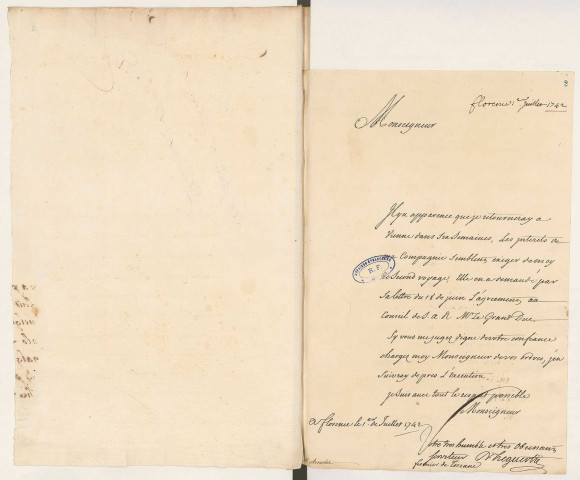 florence 1er Juillet 1742
Monseigneur
Il y a apparence que je retourneray a
Vienne dans six semaines, Les interets de
Compagnie semblent exiger de moy
ce Second voyage; Elle en a demandé par
sa lettre du 18 de juin L'agrement, au
Conseil de S. A. R. Mgr Le Grand Duc.
Sy vous me jugez digne de votre confiance
chargez moy Monseigneur de vos ordres, j'en
suivray de pres L'execution.
je suis avec tout le respect possible
Monseigneur
A florence le 1er de Juillet 1742
Votre tres humble et tres Obeissant
serviteur
fermier de toscane
R. F.